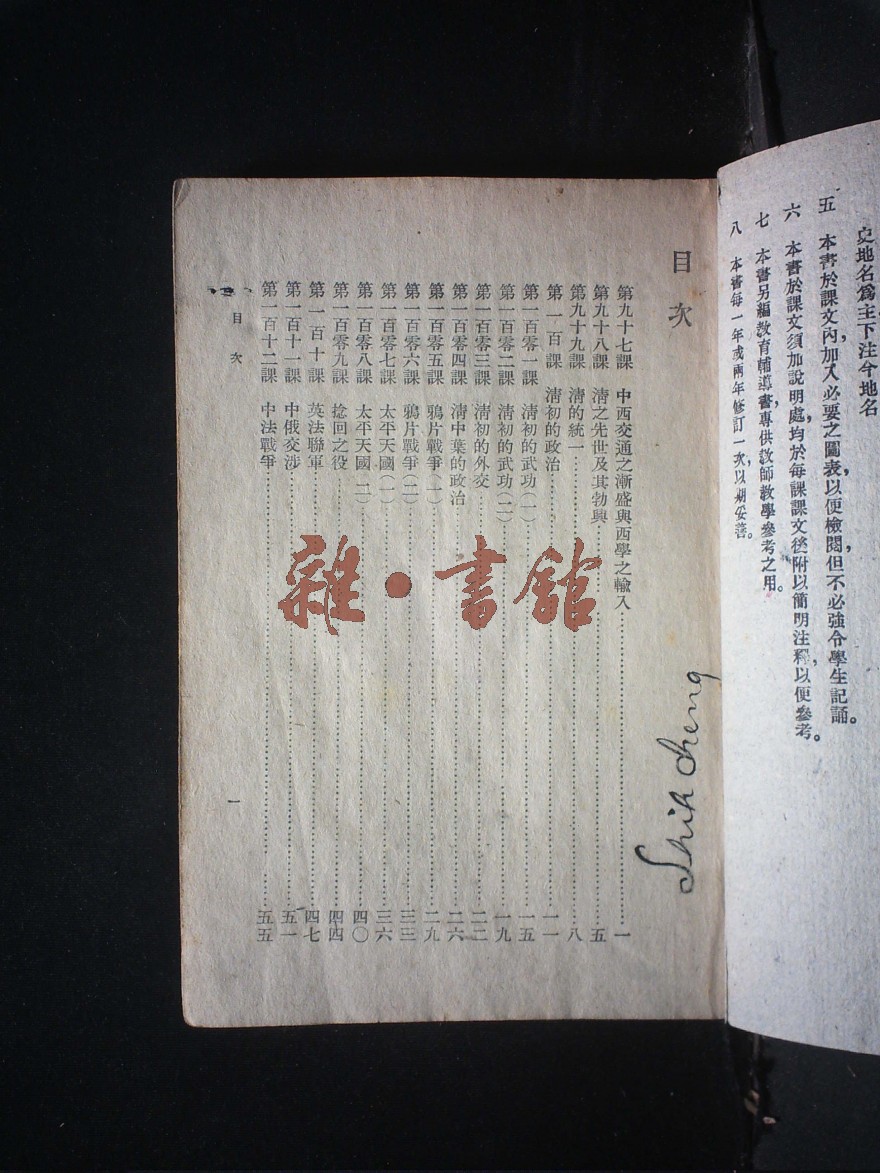 史地名爲主下注今地名
五 本書於課文內,加入必要之圖表,以便檢閱,但不必強令學生記誦。
六 本書於課文須加說明處,均於每課課文後附以簡明注釋,以便參考。
七 本書另編教育輔導書,專供教師教學參考之用。
八 本書每一年或兩年修訂一次,以期妥善。
目次
第九十七課 中西交通之漸盛與西學之輸入……一
第九十八課 清之先世及其勃興……五
第九十九課 清的統一……八
第一百課 清初的政治……一一
第一百零一課 清初的武功(一)……一五
第一百零二課 清初的武功(二)……一九
第一百零三課 清初的外交……二二
第一百零四課 清中葉的政治……二六
第一百零五課 鴉片戰爭(一)……二九
第一百零六課 鴉片戰爭(二)……三三
第一百零七課 太平天國(一)……三六
第一百零八課 太平天國(二)……四〇
第一百零九課 捻回之役……四四
第一百十課 英法聯軍……四七
第一百十一課 中俄交涉……五一
第一百十二課 中法戰爭……五五
目次
一
Shih cheng
雜·書館